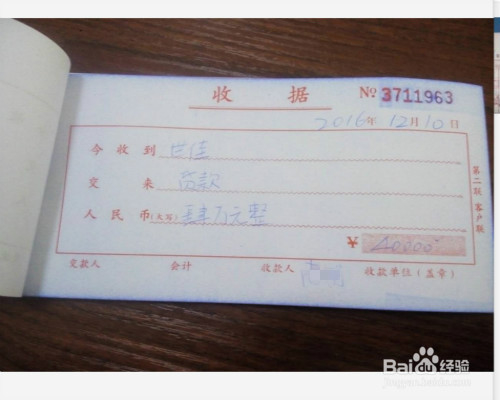 收 据 No 3711963
2016年12月10日
今收到 世佳
交来 货款
人民币(大写) 肆万元整
¥ 40000
交款人 会计 收款人 收款单位(盖章)
第二联 客户联
Baidu经验
jingyan.baidu.com